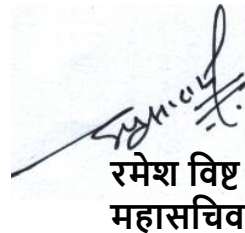 रमेश विष्ट
महासचिव